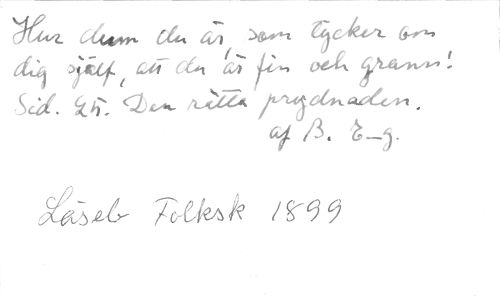 Hur dum du är, som tycker om
dig själf, att du är fin och grann!
Sid. 25. Den rätta prydnaden.
af B. E–g.
Läseb Folksk 1899